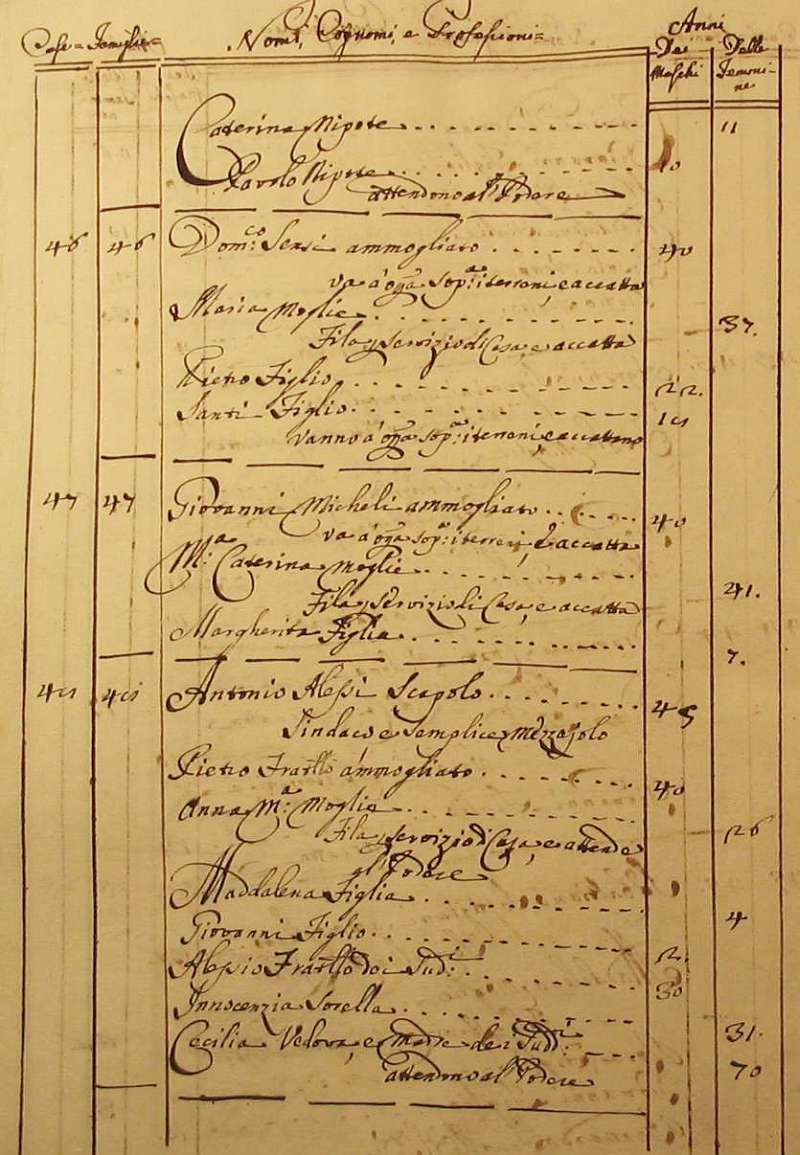 Case = Famiglie = Nomi, Cognomi, e Professioni = Anni
Dei Maschi Delle Femmine
Caterina Nipote 11
Pavolo Nipote 10
attendono al Podere
46 46 Dom:co Sensi ammogliato 40
va à opra sop:a i terreni, e accatta
Maria Moglie 37.
Fila, servizio di Casa, e accatta
Pietro Figlio 22.
Santi Figlio 19
vanno à opra sop:a i terreni, e accattano
47 47 Giovanni Micheli ammogliato 40
va à opra sop:a i terreni, e accatta
M:a Caterina Moglie 41.
Fila, servizio di Casa, e accatta
Margherita Figlia 7.
49 49 Antonio Alessi Scapolo 45
Sindaco e semplice mezzajolo
Pietro Fratello ammogliato 40
Anna M:a Moglie 26
Fila, servizio di Casa, e attende
al Podere
Maddalena Figlia 4
Giovanni Figlio 2.
Alessio Fratello dei Sudd:i 30
Innocenzia Sorella 31.
Cecilia Vedova, e Madre dei Sudd:i 70
attendono al Podere